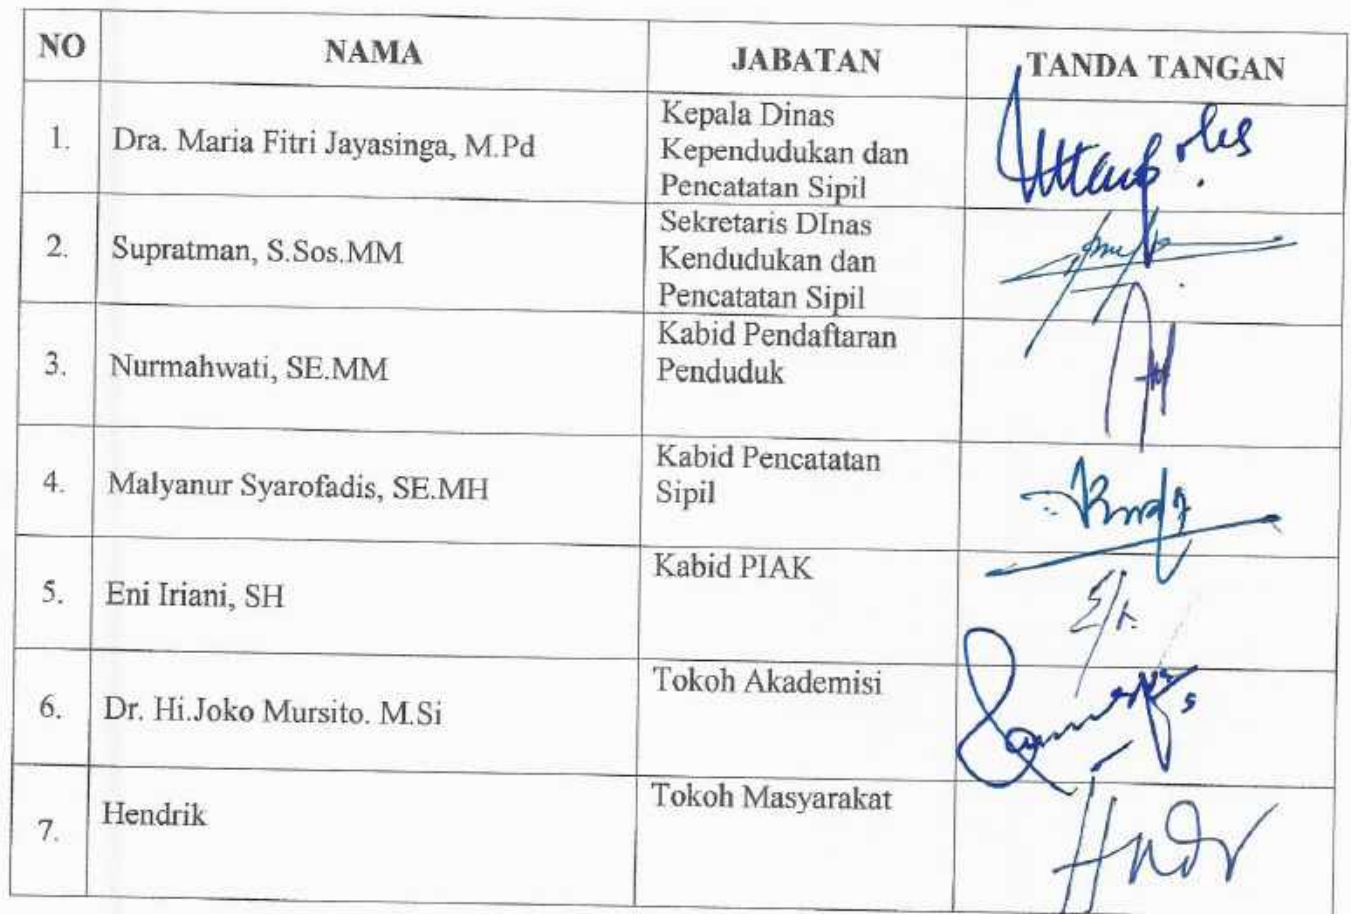 NO NAMA JABATAN TANDA TANGAN
1. Dra. Maria Fitri Jayasinga, M.Pd Kepala Dinas
Kependudukan dan
Pencatatan Sipil
2. Supratman, S.Sos.MM Sekretaris DInas
Kendudukan dan
Pencatatan Sipil
3. Nurmahwati, SE.MM Kabid Pendaftaran
Penduduk
4. Malyanur Syarofadis, SE.MH Kabid Pencatatan
Sipil
5. Eni Iriani, SH Kabid PIAK
6. Dr. Hi.Joko Mursito. M.Si Tokoh Akademisi
7. Hendrik Tokoh Masyarakat